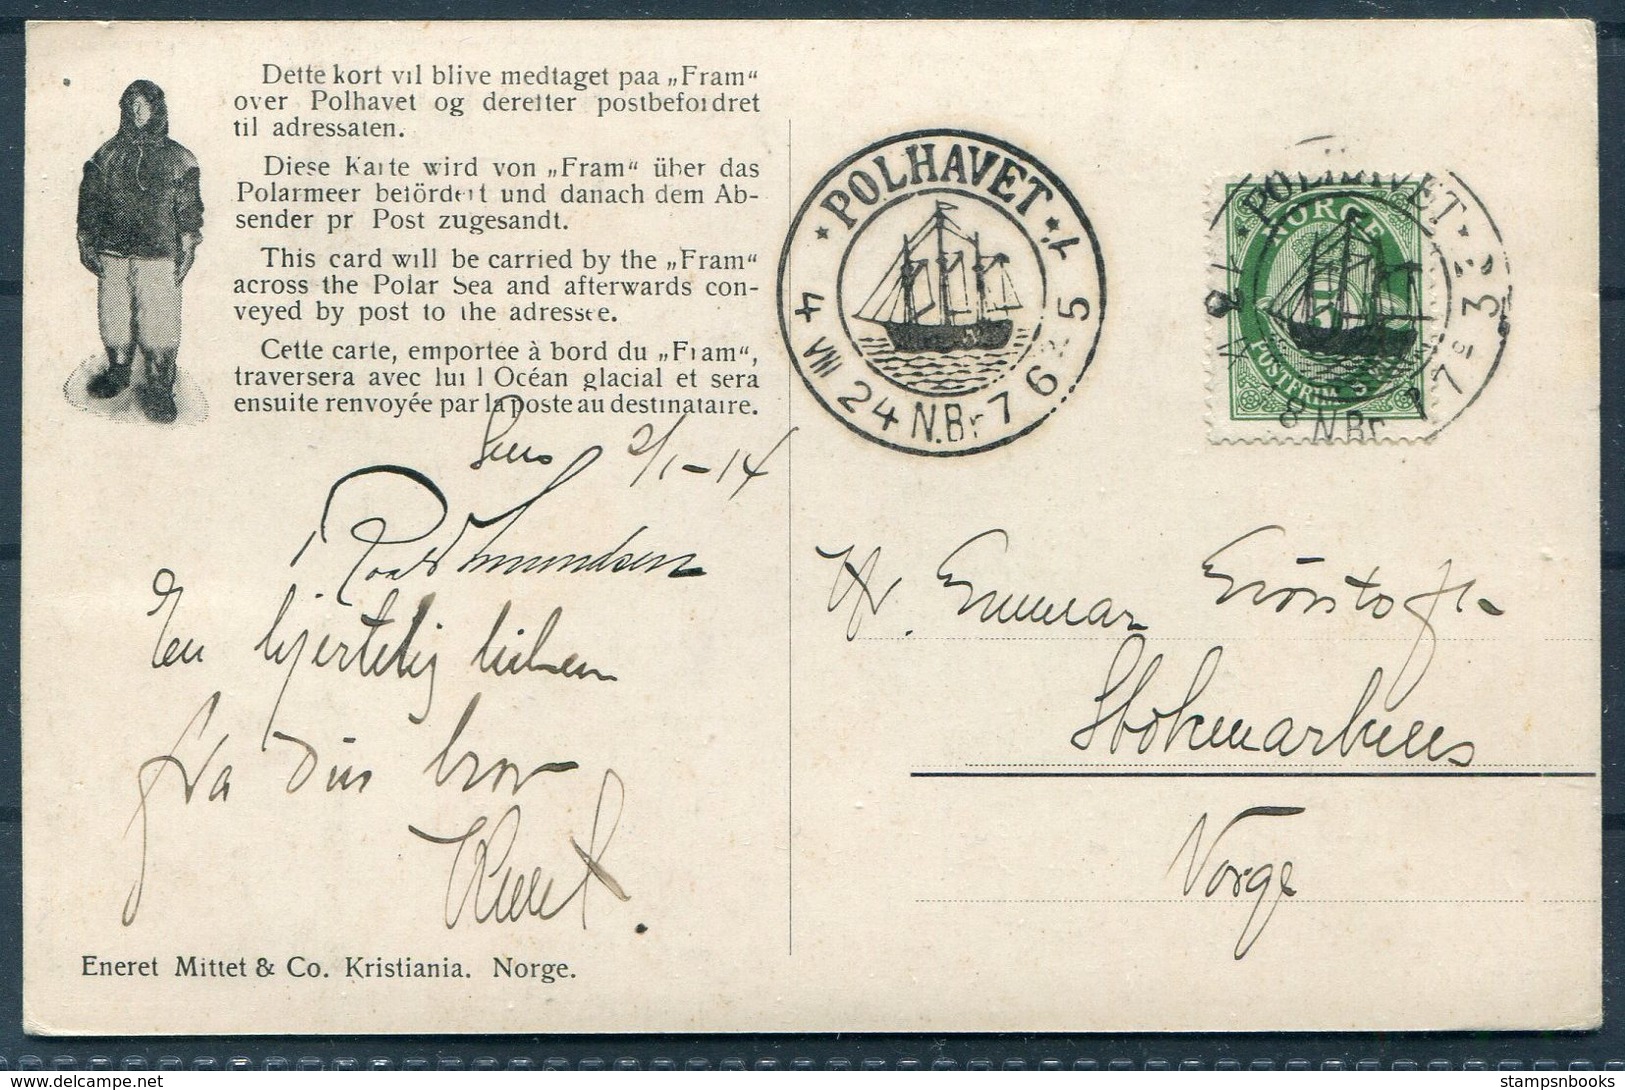 Dette kort vil blive medtaget paa „Fram“
over Polhavet og derefter postbefordret
til adressaten.
Diese Karte wird von „Fram“ über das
Polarmeer befördert und danach dem Ab-
sender pr Post zugesandt.
This card will be carried by the „Fram“
across the Polar Sea and afterwards con-
veyed by post to the adressee.
Cette carte, emportee à bord du „Fram“,
traversera avec lui l Océan glacial et sera
ensuite renvoyée par la poste au destinataire.
2/1-14
Roald Amundsen
En hjertelig hilsen
fra din bror
Knut.
Eneret Mittet & Co. Kristiania. Norge.
* POLHAVET *
4 VIII 24 N.Br 7 6
NORGE
5
POSTFRIM
POLHAVET
N.Br
Hr.
Stokmarknes
Norge
stampsnbooks
© www.delcampe.net